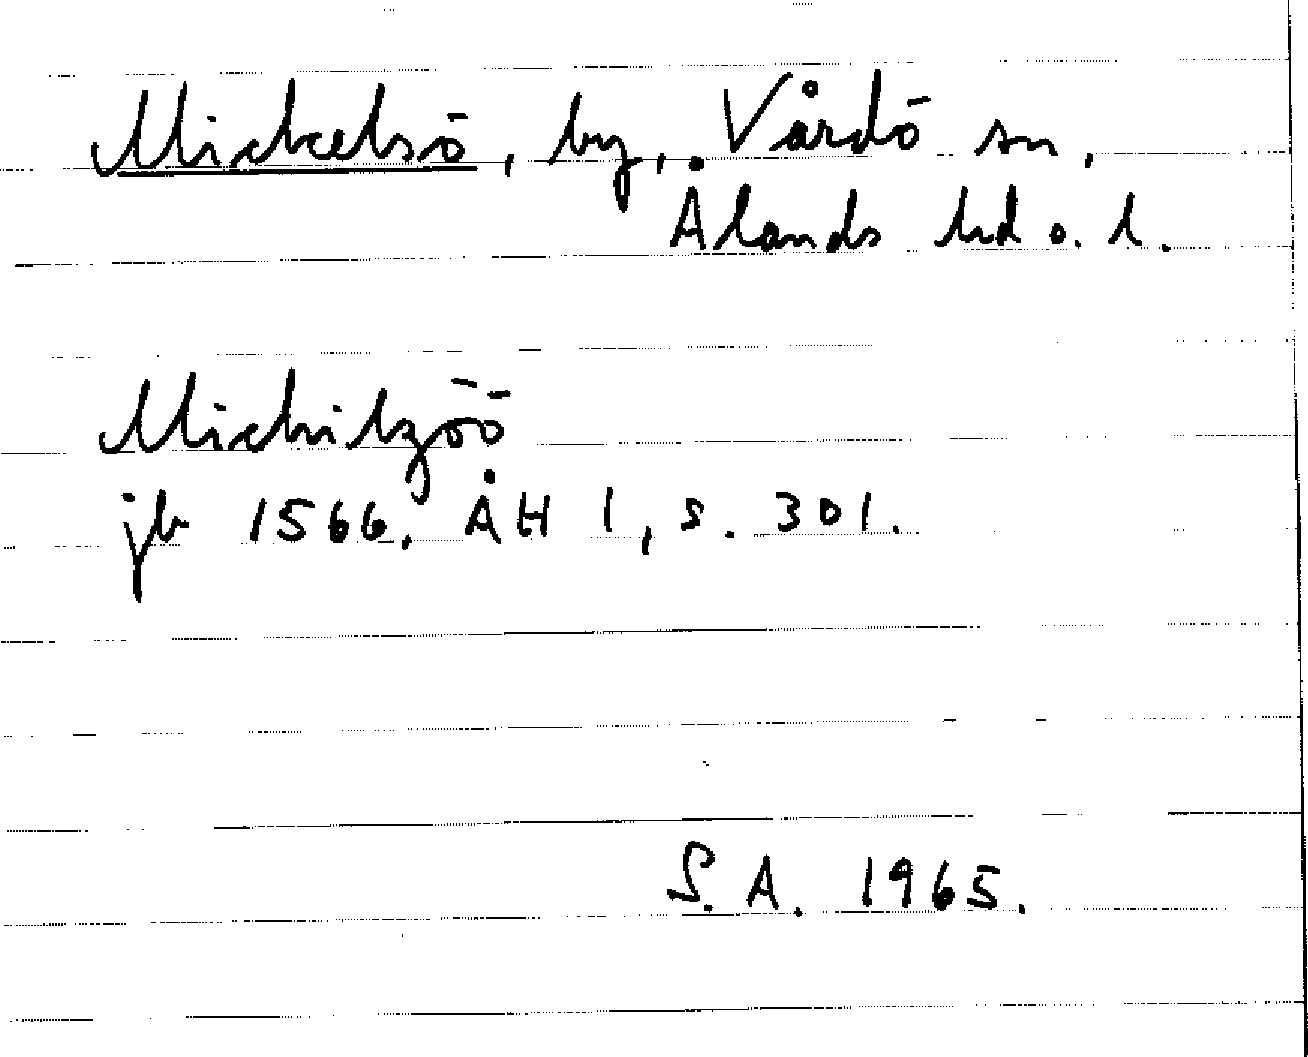 Mickelsö, by, Vårdö sn,
Ålands hd o. l.
Michilzöö
jb 1566. ÅH 1, s. 301.
S.A. 1965.